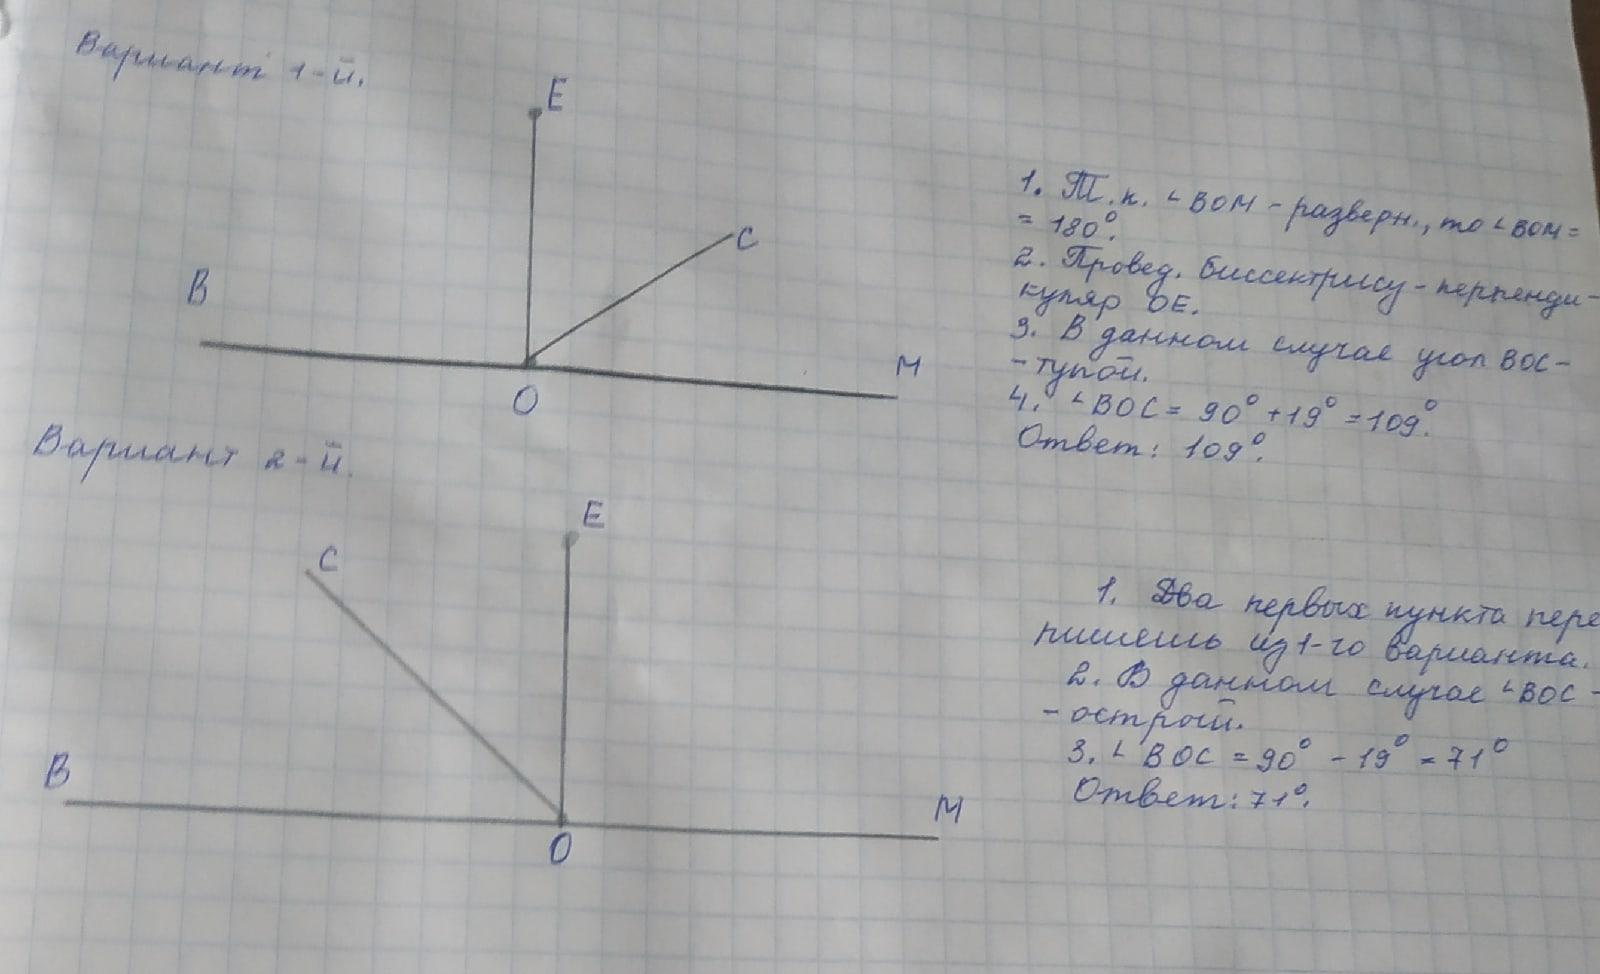 Вариант 1-й.
E
C
B
M
O
1. Т.к. ∠BOM - разверн., то ∠BOM =
= 180°.
2. Провед. биссектрису - перпенди-
куляр OE.
3. В данном случае угол BOC -
- тупой.
4. ∠BOC = 90° + 19° = 109°.
Ответ: 109°.
Вариант 2-й.
E
C
B
M
O
1. Два первых пункта пере
пишешь из 1-го варианта.
2. В данном случае ∠BOC -
- острый.
3. ∠BOC = 90° - 19° = 71°
Ответ: 71°.